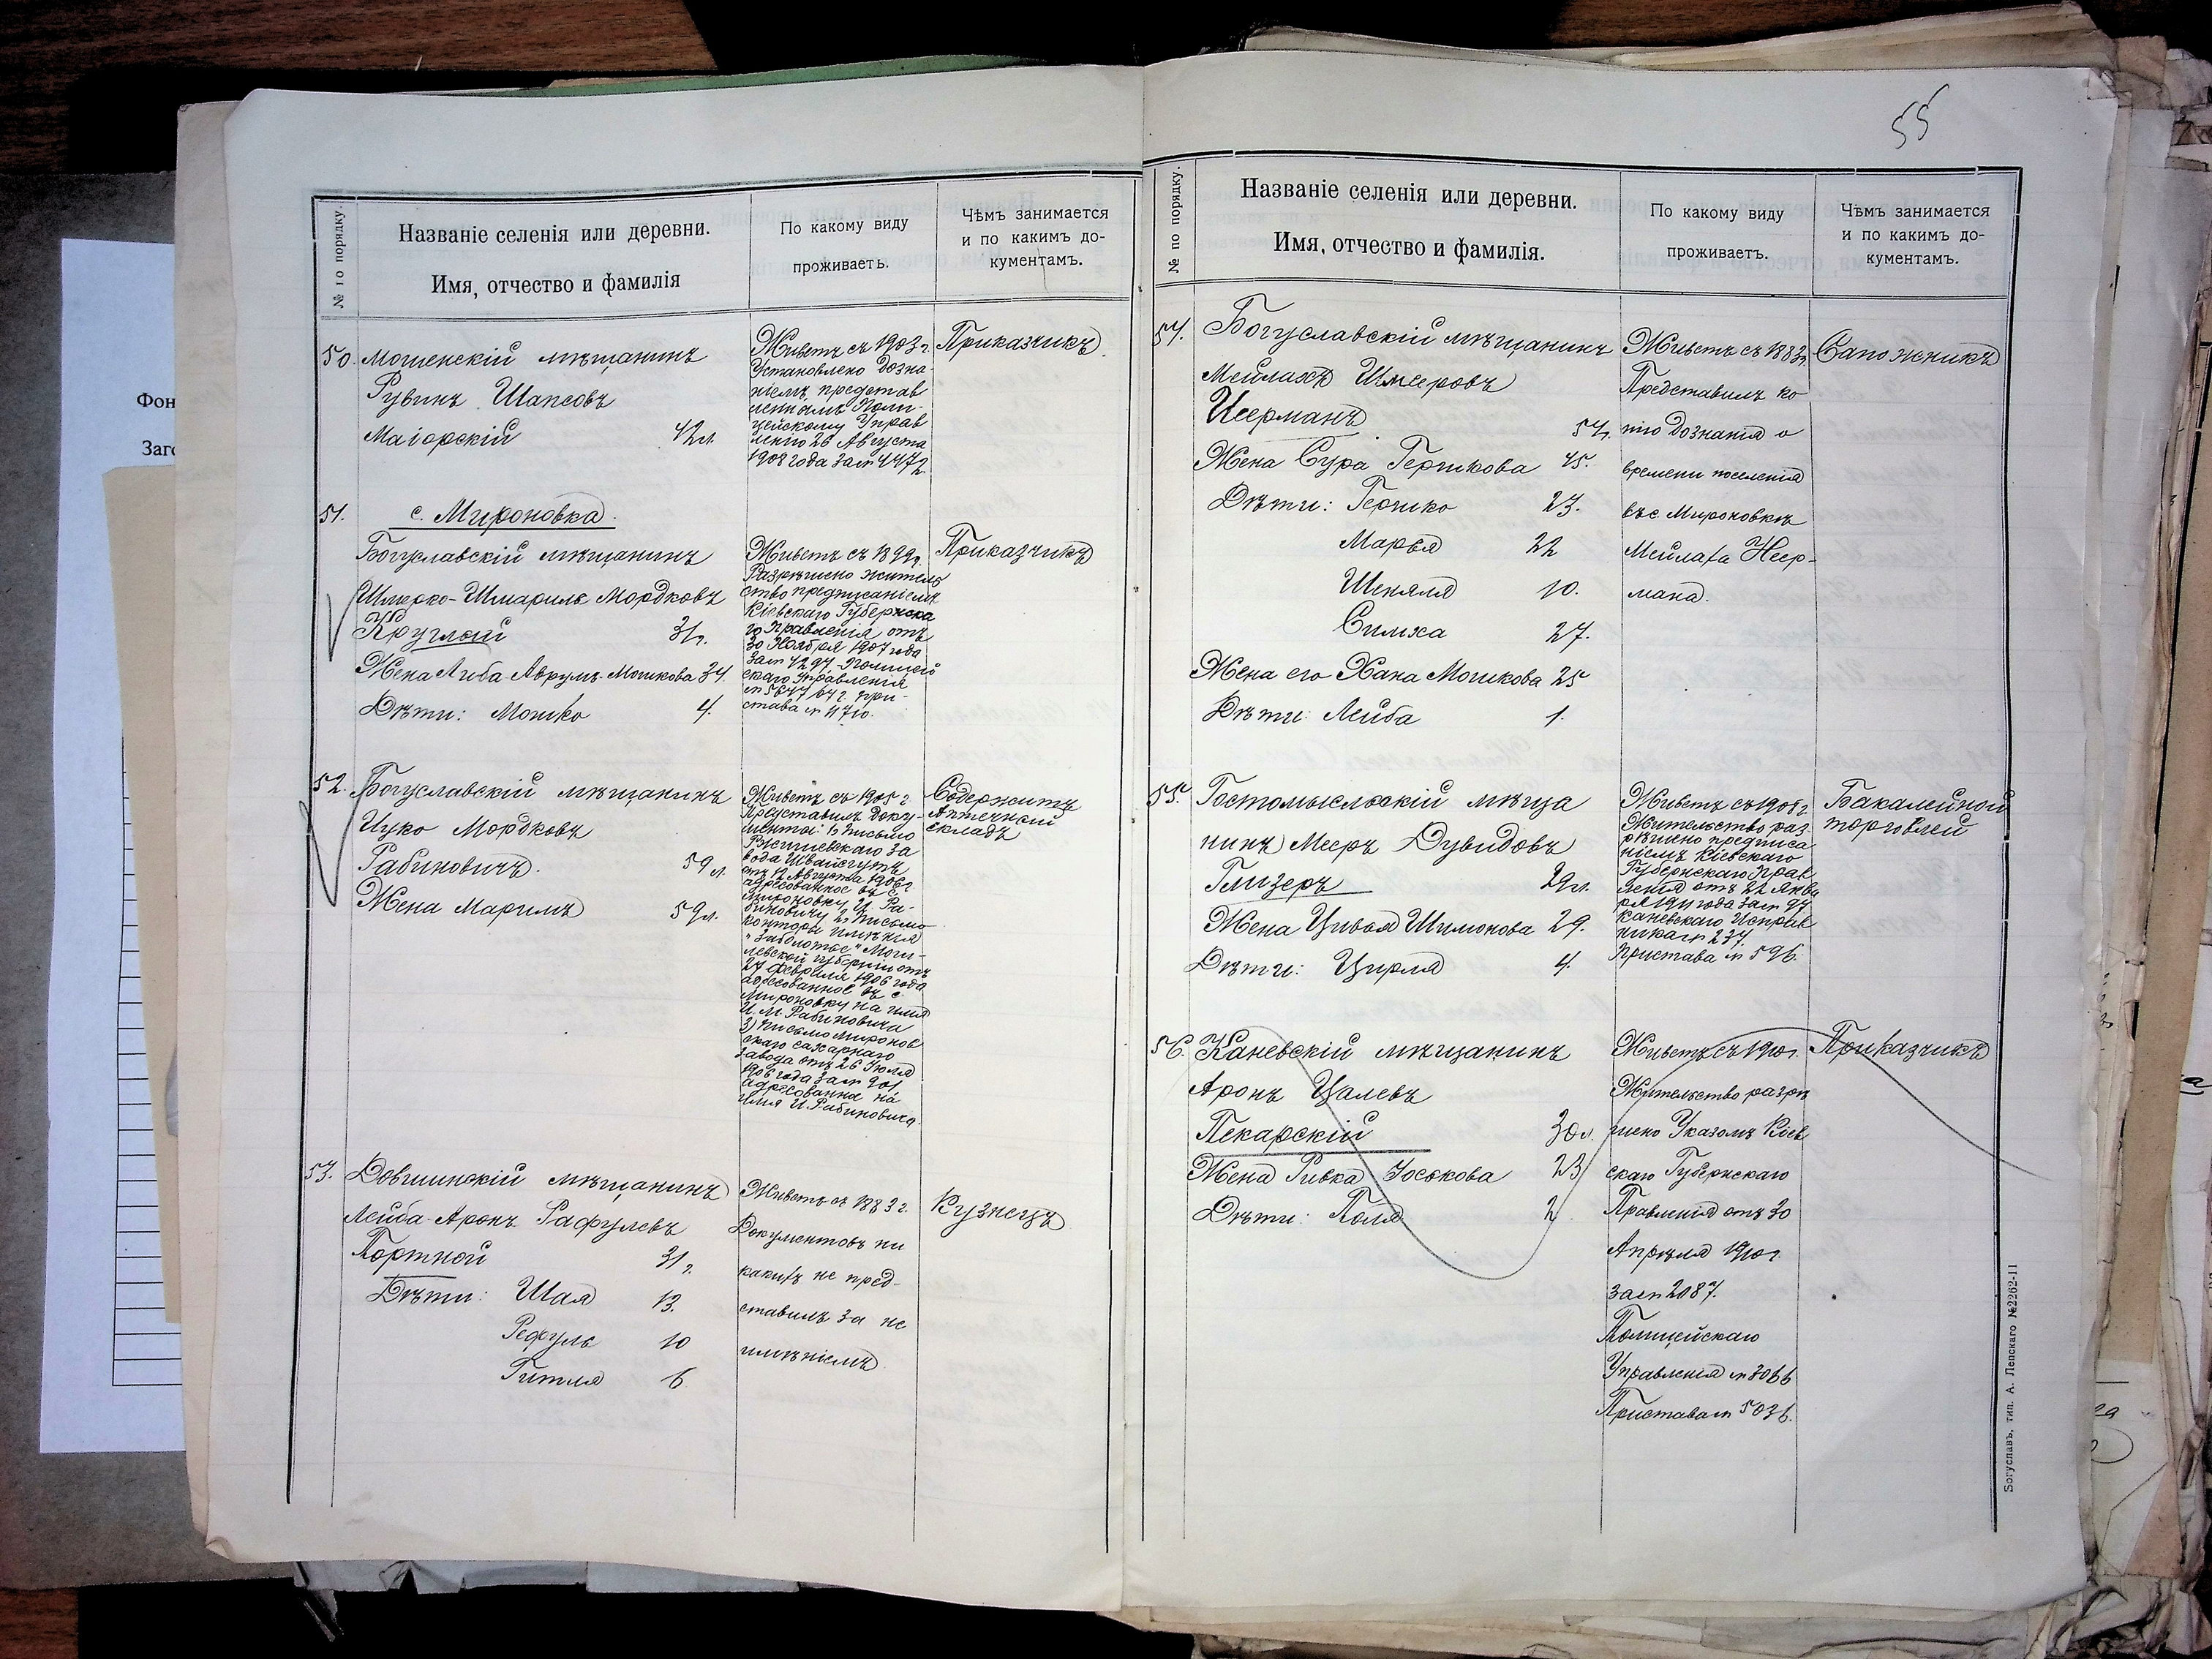 Фон
Заго
№ по порядку
Названіе селенія или деревни.
Имя, отчество и фамилія
По какому виду
проживаетъ.
Чѣмъ занимается
и по какимъ до-
кументамъ.
50. Мошенскій мѣщанинъ
Рувинъ Шапсовъ
Маіорскій 42л.
Живетъ съ 1903 г.
Установлено дозна-
ніемъ, представ
леннымъ Поли-
цейскому Управ
ленію 26 Августа
1908 года за № 4472.
Приказчикъ
51. с. Мироновка.
Богуславскій мѣщанинъ
Шмерко-Шмариль Мордковъ
Круглый 31г.
Жена Либа-Аврумъ-Мошкова 34.
Дѣти: Мошко 4.
Живетъ съ 1899г.
Разрѣшено житель
ство предписаніемъ
Кіевскаго Губернска
го Правленія отъ
30 Ноября 1907 года
за № 4297 Полицей
скаго Управленія
№ 5677/07 г. При-
става № 11710.
Приказчикъ
52. Богуславскій мѣщанинъ
Ицко Мордковъ
Рабиновичъ. 59 л.
Жена Маримъ 59л.
Живетъ съ 1905 г
Представилъ доку-
менты: 1, письмо
Ржищевскаго за
вода Швайгутъ
отъ 12 Августа 1906г
адресованное въ с.
Мироновку, И. Ра-
биновичу 2, письмо
конторы имѣнія
"Заболотье" Моги-
левской губерніи отъ
27 февраля 1906 года
адресованное въ с.
Мироновку на имя
И. М. Рабиновича
3) письмо Миронов
скаго сахарнаго
завода отъ 26 Іюля
1906 года за № 901
адресованна на
имя И. Рабиновича.
Содержитъ
Аптечный
складъ
53. Довгишскій мѣщанинъ
Лейба-Аронъ Рафулевъ
Портной 31 г.
Дѣти: Шая 13.
Рефуль 10
Гитля 6
Живетъ съ 1883 г.
Документовъ ни
какихъ не пред-
ставилъ за не
имѣніемъ
Кузнецъ
55
№ по порядку.
Названіе селенія или деревни.
Имя, отчество и фамилія.
По какому виду
проживаетъ.
Чѣмъ занимается
и по какимъ до-
кументамъ.
54. Богуславскій мѣщанинъ
Мейлахъ Шмееровъ
Неерманъ 54г.
Жена Сура Гершкова 45.
Дѣти: Гершко 23.
Марья 22
Шейдля 10.
Симха 27.
Жена его Хана Мошкова 25
Дѣти: Лейба 1.
Живетъ съ 1883г.
Представилъ ко
пію дознанія о
времени поселенія
въ с. Мироновкѣ
Мейлаха Неер-
мана.
Сапожникъ
55. Гостомысльскій мѣща
нинъ Мееръ Дувидовъ
Глизеръ 29л.
Жена Цивья Шимонова 29.
Дѣти: Цирля 4.
Живетъ съ 1908г.
Жительство раз-
рѣшено предписа
ніемъ Кіевскаго
Губернскаго Прав
ленія отъ 22 Янва
ря 1911 года за № 97
Каневскаго Исправ
ника № 237.
Пристава № 596.
Бакалейной
торговлей
56. Каневскій мѣщанинъ
Аронъ Цалевъ
Пекарскій 30 л.
Жена Ривка Іоськова 23
Дѣти: Поля 2
Живетъ съ 1910 г.
Жительство разрѣ
шено Указомъ Кіев
скаго Губернскаго
Правленія отъ 30
Апрѣля 1910 г.
за № 2087.
Полицейскаго
Управленія № 3066
Пристава № 5036.
Приказчикъ
Богуславъ, тип. А. Лепскаго №2262-11